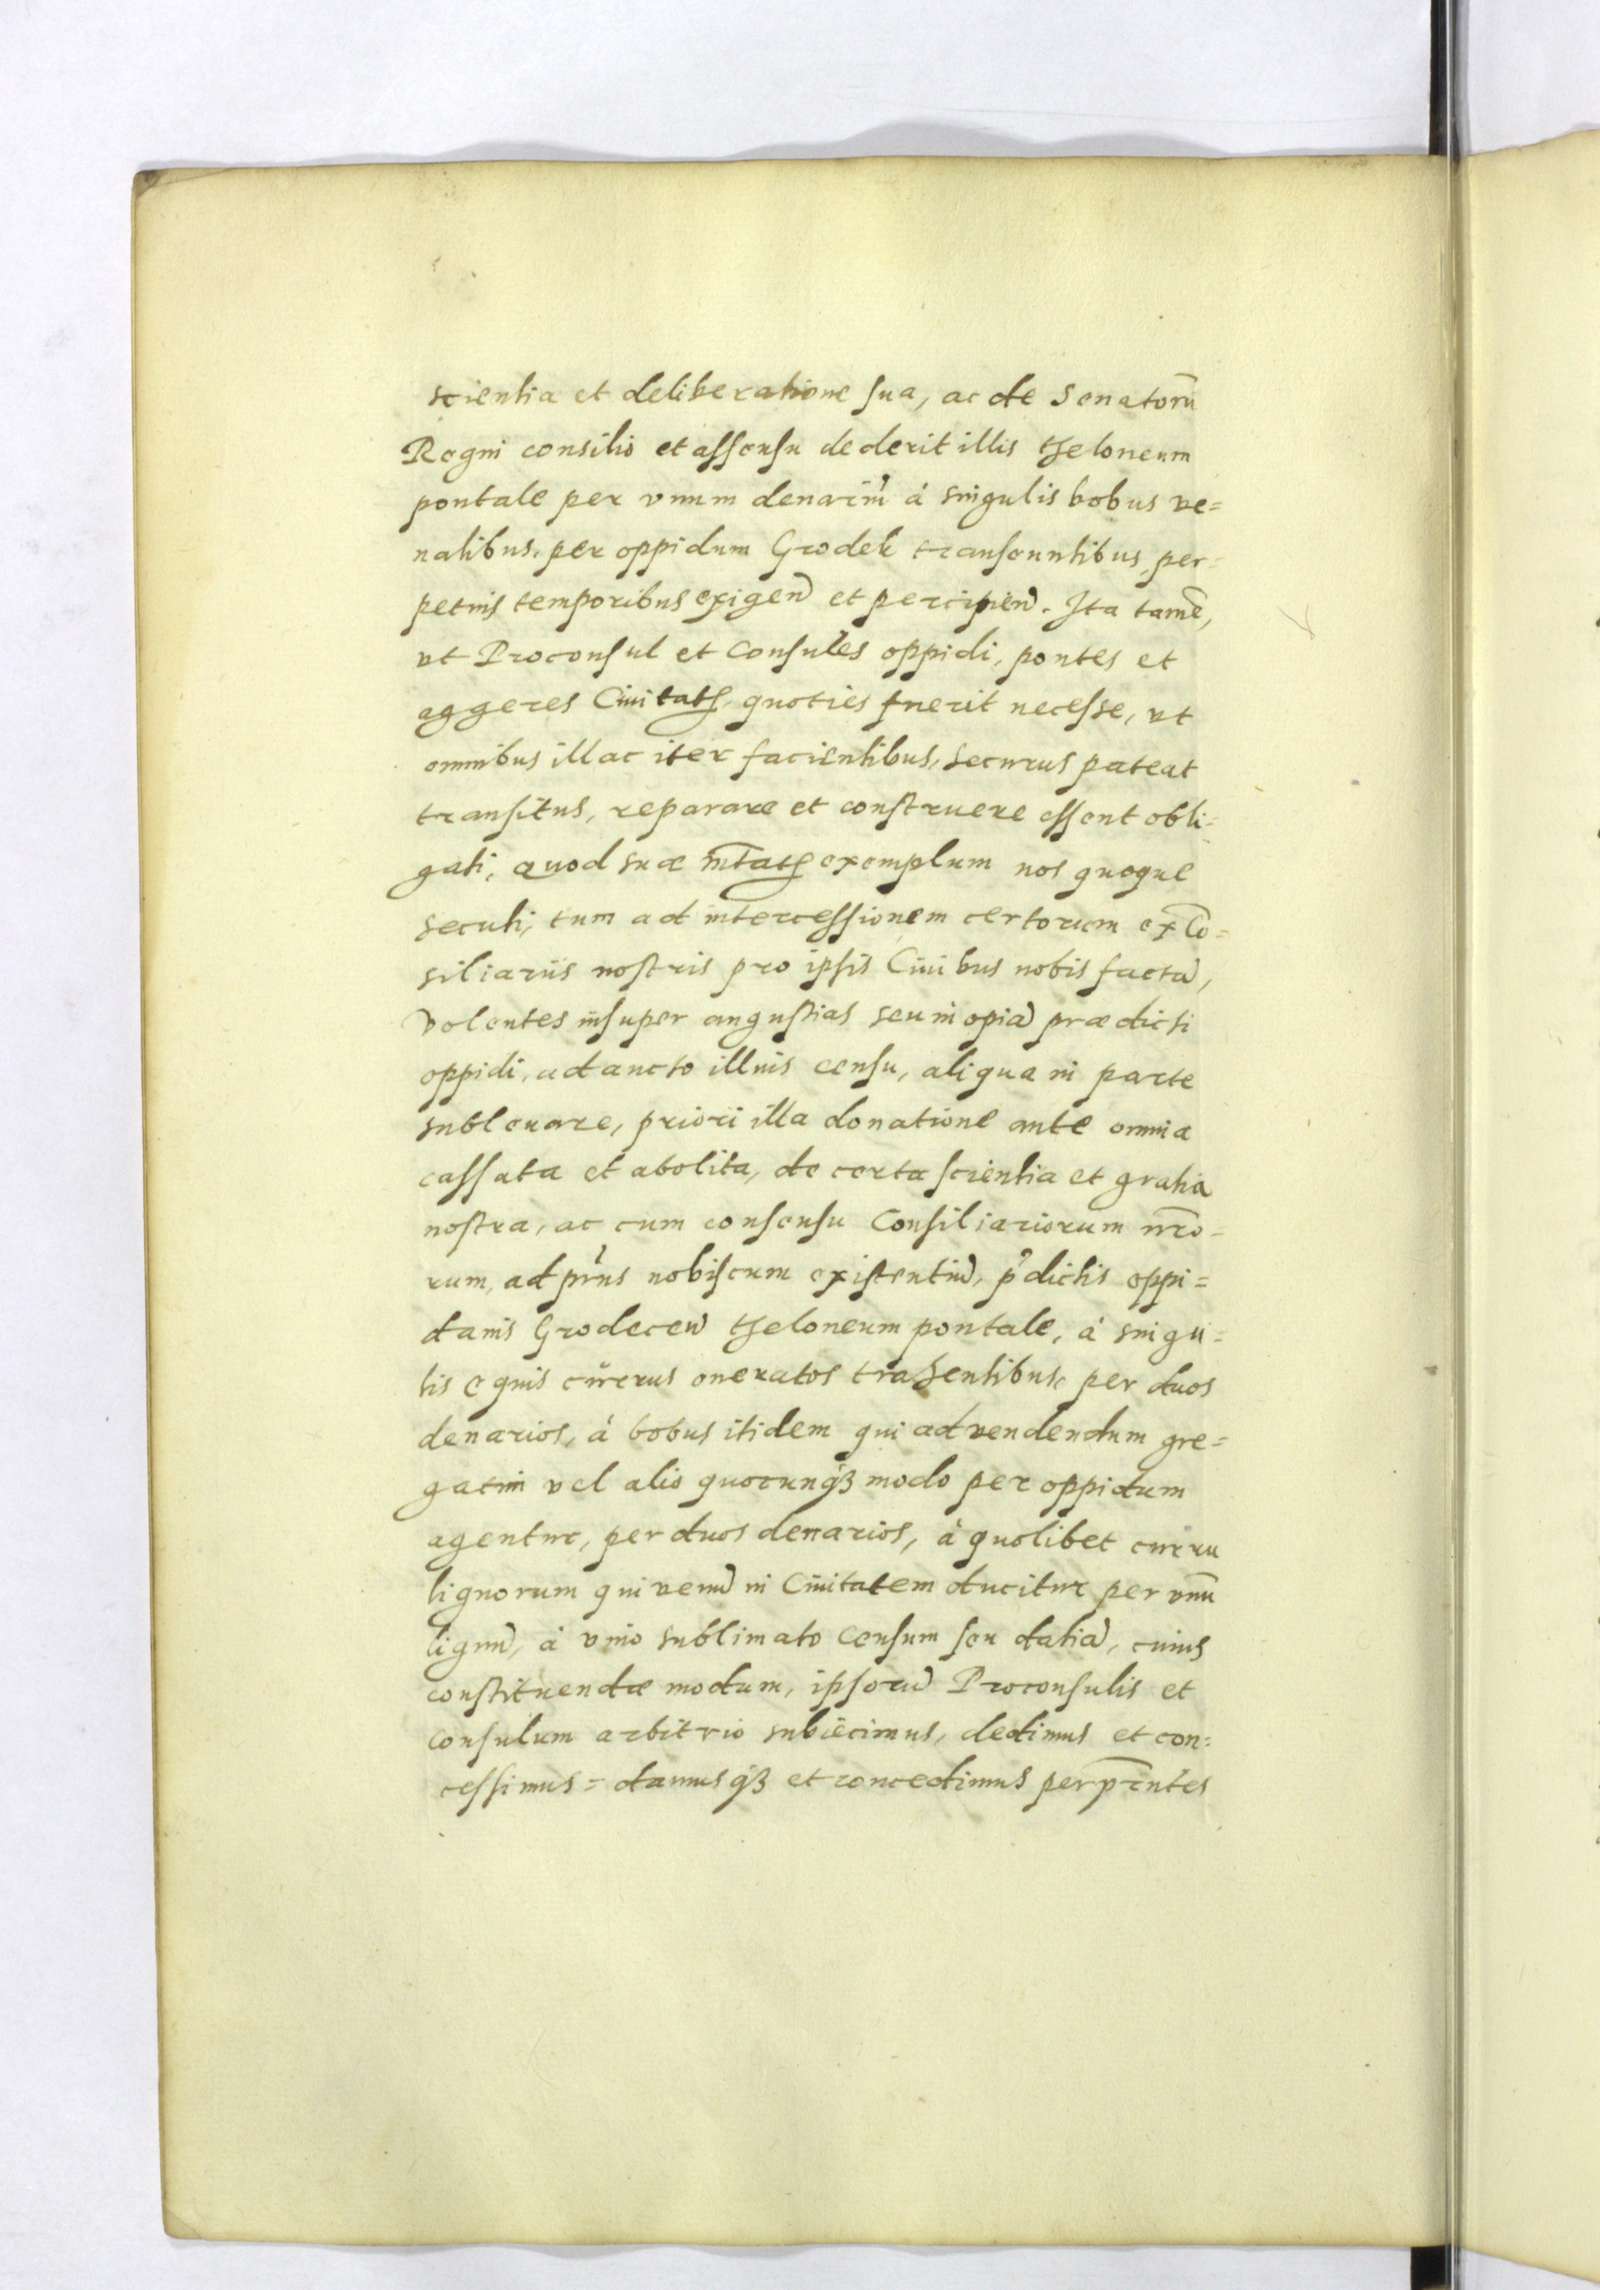 scientia et deliberatione sua, ac de Senatorũ
Regni consilio et assensu dederit illis theloneum
pontale per vnum denariũ à singulis bobus ve=
nalibus, per oppidum Grodek transeuntibus, per=
petuis temporibus exigen̄ et percipien̄. Ita tamē,
vt Proconsul et Consules oppidi, pontes et
aggeres Ciuitatꝭ, quoties fuerit necesse, vt
omnibus illac iter facientibus, securus pateat
transitus, reparare et construere essent obli=
gati, quod suæ Mt̄atꝭ exemplum nos quoque
secuti, tum ad intercessionem certorum ex Cō=
siliariis nostris pro ipsis Ciuibus nobis factā,
Volentes insuper angustias seu inopiā prædicti
oppidi, adaucto illius censu, aliqua in parte
subleuare, priori illa donatione ante omnia
cassata et abolita, de certa scientia et gratia
nostra, ac cum consensu Consiliariorum nr̄o=
rum, ad prn̄s nobiscum existentiū, p̄dictis oppi=
danis Grodecen̄ theloneum pontale, à singu=
lis equis currus oneratos trahentibus, per duos
denarios, à bobus itidem qui ad vendendum gre=
gatim vel alio quocunqꝫ modo per oppidum
agentur, per duos denarios, à quolibet curru
lignorum qui venū in Ciuitatem ducitur per vnũ
lignū, à vino sublimato censum seu datiā, cuius
constituendæ modum, ipsorū Proconsulis et
consulum arbitrio subiecimus, dedimus et con=
cessimus = damusqꝫ et concedimus per prn̄tes